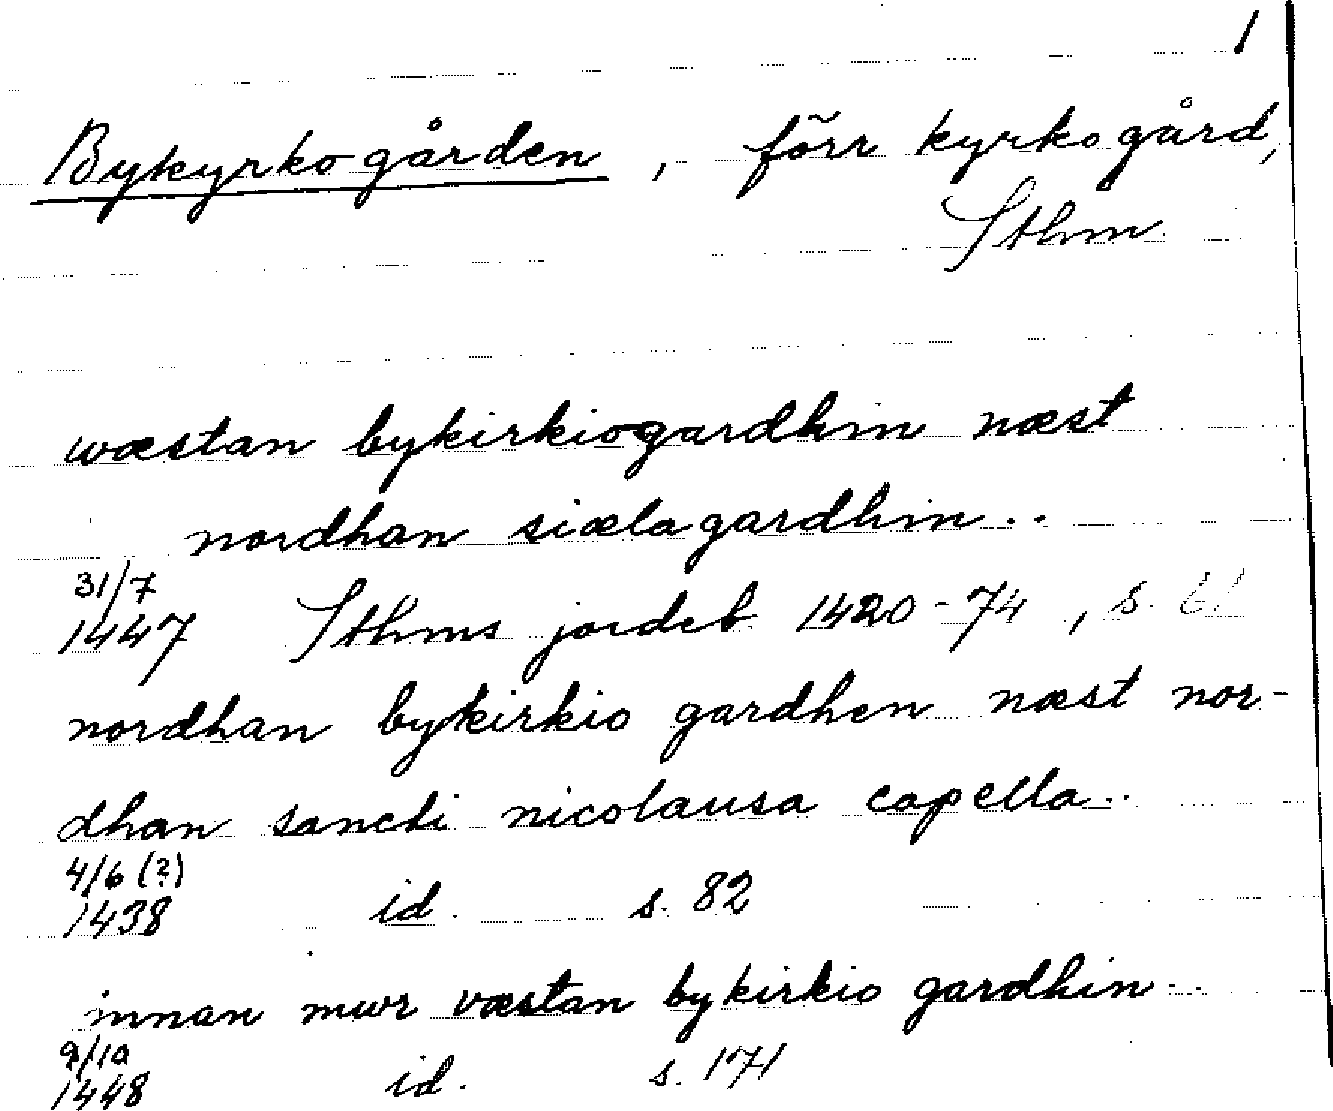 1
Bykyrkogården, förr kyrkogård,
Sthm.
wæstan bykirkiogardhin næst
nordhan siælagardhin..
31/7
1447 Sthms jordeb 1420-74, s. 61
nordhan bykirkio gardhen næst nor-
dhan sancti nicolausa capella..
4/6 (?)
1438 id. s. 82
innan mwr væstan bykirkio gardhin..
9/10
1448 id. s. 171